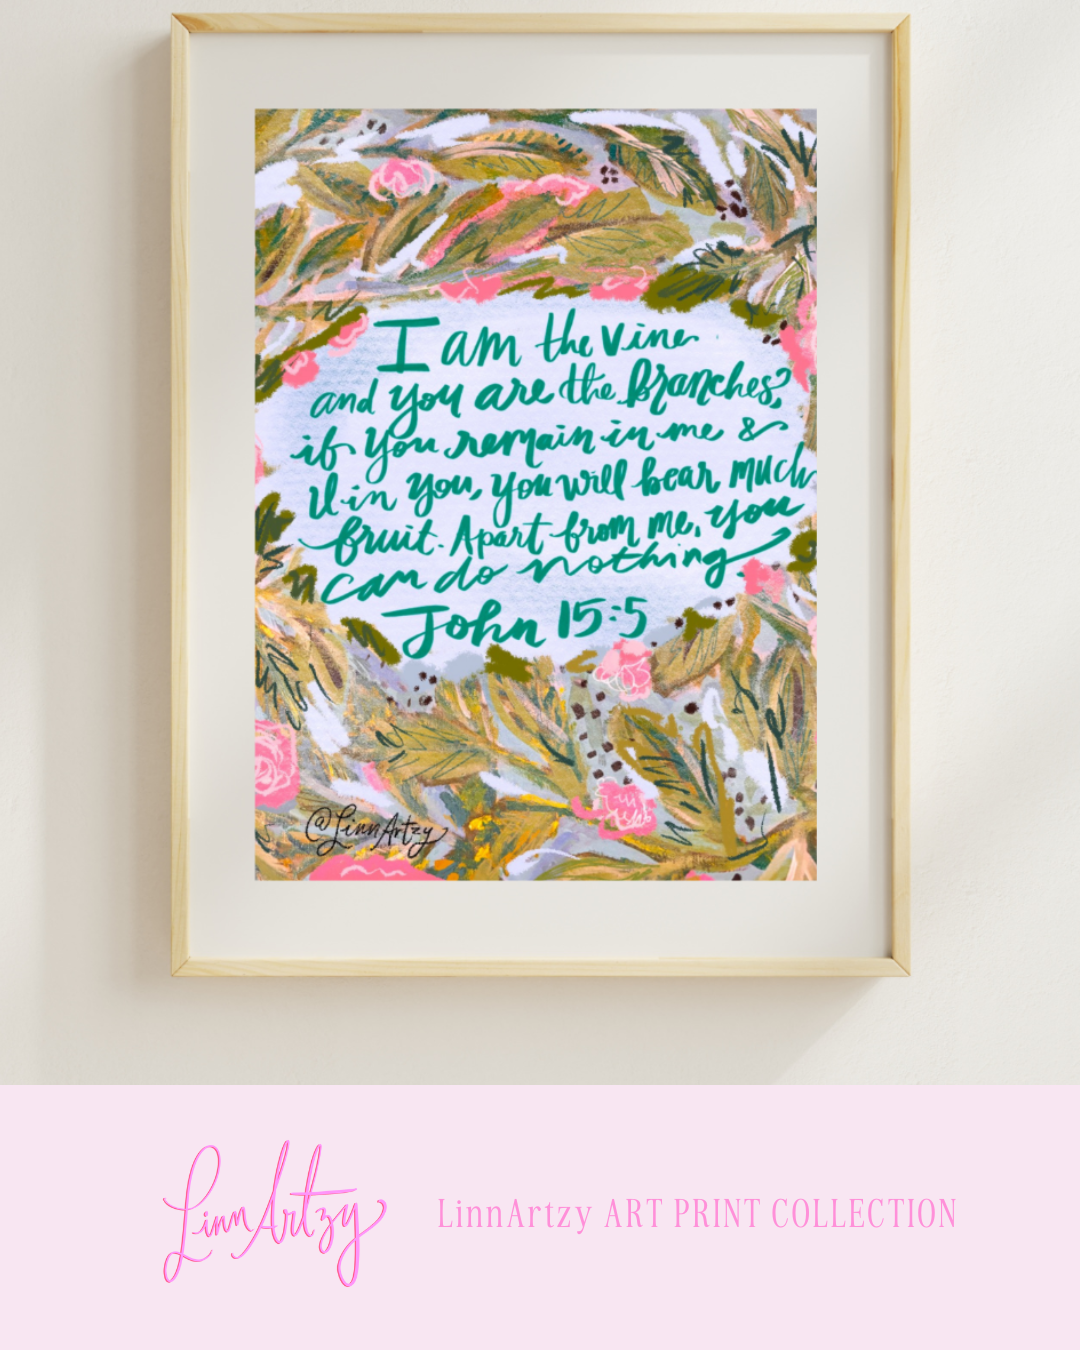 I am the vine
and you are the branches,
if you remain in me &
I in you, you will bear much
fruit. Apart from me, you
can do nothing
John 15:5
@LinnArtzy
LinnArtzy
LinnArtzy ART PRINT COLLECTION